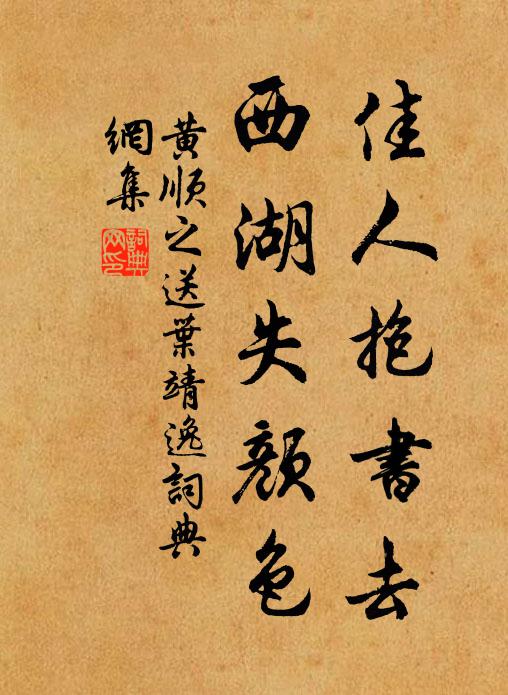 佳人抱書去
西湖失顏色
黃順之送葉靖逸詞典
網集
詞典
網印